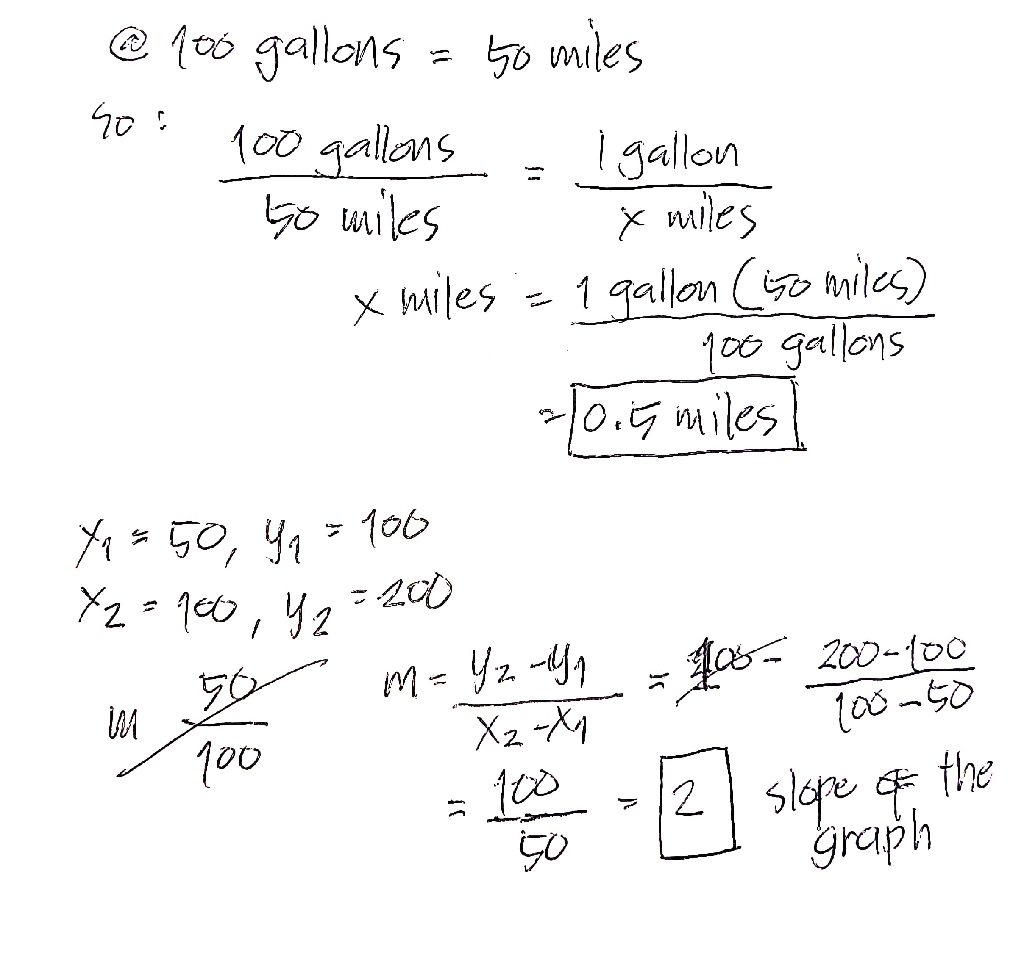 @ 100 gallons = 50 miles
so :
100 gallons / 50 miles = 1 gallon / x miles
x miles = 1 gallon (50 miles) / 100 gallons
= 0.5 miles
x₁ = 50, y₁ = 100
x₂ = 100, y₂ = 200
m 50 / 100
m = y₂ - y₁ / x₂ - x₁ = 100 - 200 - 100 / 100 - 50
= 100 / 50 = 2 slope of the
graph